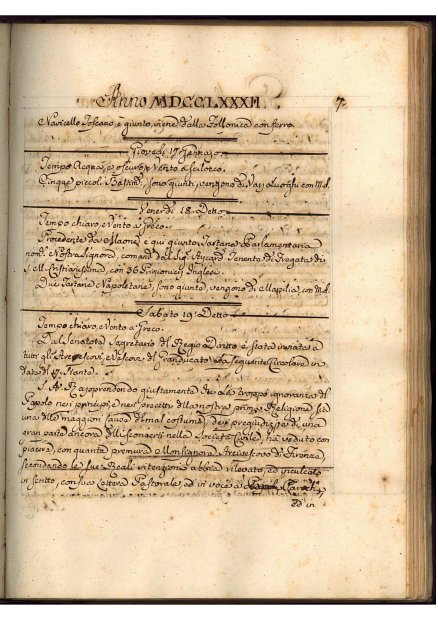 Anno MDCCLXXXII. 7.
Navicello Toscano, è giunto, viene dalla Follonica con ferro.
Giovedì 17 Gennajo
Tempo Acquoso, oscuro, e Vento a Scilocco.
Cinque piccoli Bastim.ti sono giunti, vengono da Varj Luoghi con Md.
Venerdì 18. Detto
Tempo chiaro, e Vento a Greco.
Procedente da Maone, è qui giunto, Tartana Parlamentaria
nom. Nostra Signora, comand. dal Sig. Aycard Tenente di Fregata di
S. M. Cristianissima, con 36 Prigionieri Inglesi.
Due Tartane Napoletane, sono giunte, vengono di Napoli, con Md.
Sabato 19. Detto
Tempo chiaro, e Vento a Greco.
Dal Senatore Segretario del Regio Diritto è stata inviata a
tutti gli Arcivescovi, e Vescovi del Granducato la seguente Circolare in
data del Stante.
S. A. R. apprendendo giustamente che la troppo ignoranza del
Popolo nei principj, e nei precetti della nostra prima Religione sia
una delle maggiori cause di mal costume, dei pregiudizj di una
gran parte ancora dei disordini nella Società Civile, ha veduto con
piacere, con quanta premura Monsignore Arcivescovo di Firenze,
secondando le sue Reali intenzioni abbia rilevato, ed inculcato
in scritto, con sua Lettera Pastorale, ed in voce ai Parochi,
ed in